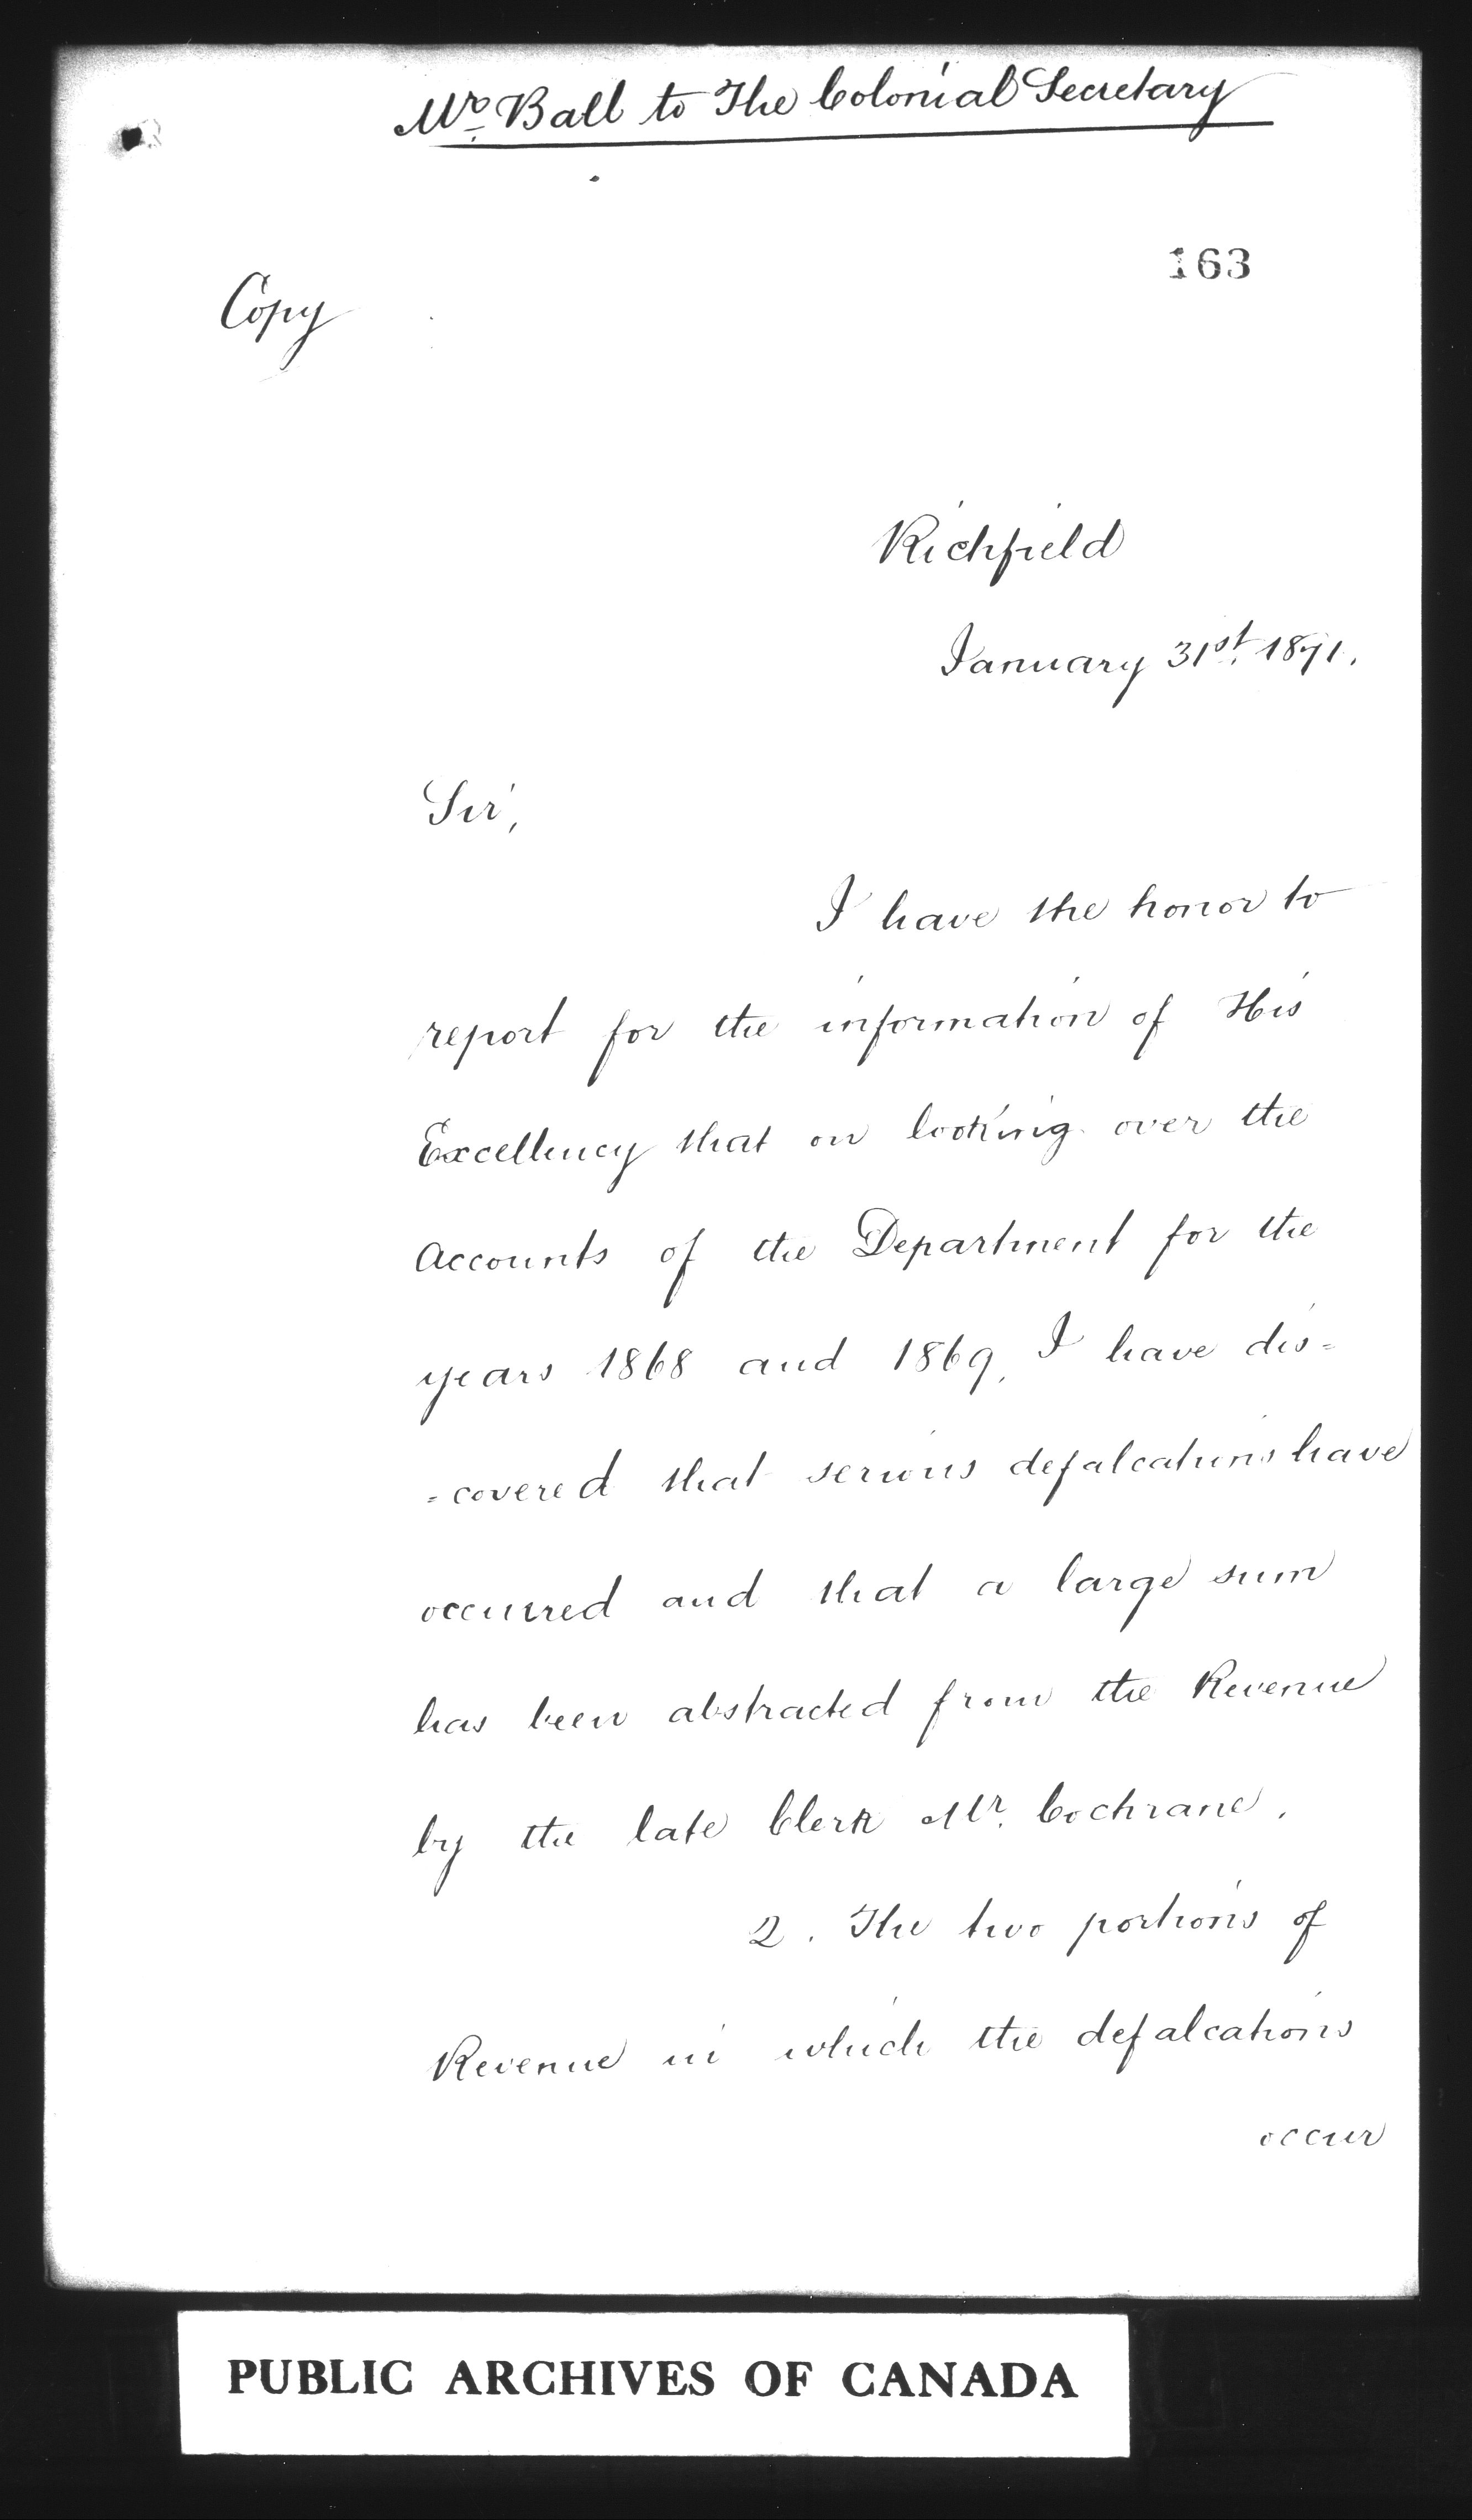 Mr. Ball to The Colonial Secretary
163
Copy
Richfield
January 31st. 1871.
Sir,
I have the honor to
report for the information of His
Excellency that on looking over the
accounts of the Department for the
years 1868 and 1869, I have dis=
=covered that serious defalcations have
occurred and that a large sum
has been abstracted from the Revenue
by the late Clerk Mr. Cochrane.
2. The two portions of
Revenue in which the defalcations
occur
PUBLIC ARCHIVES OF CANADA